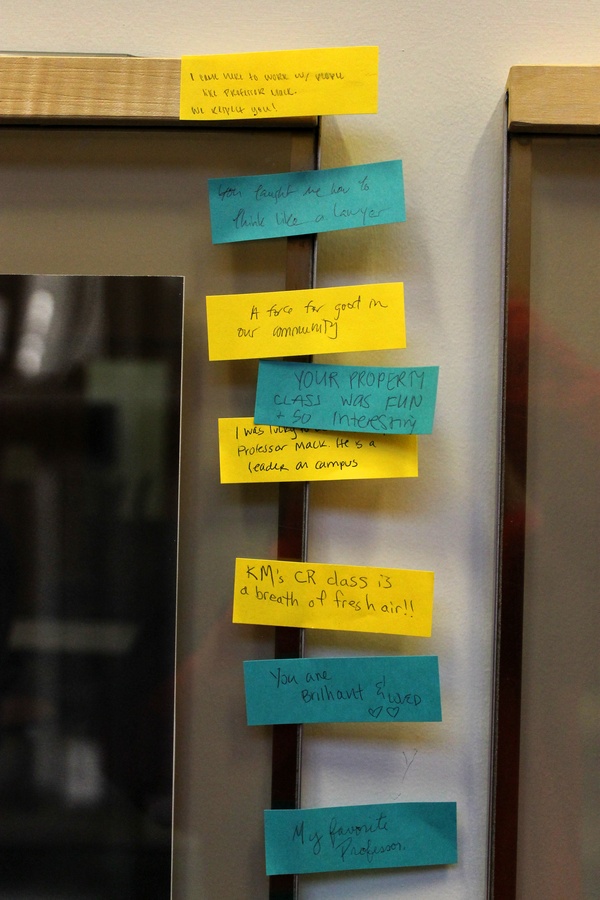 I came here to work w/ people
like Professor Mack.
We respect you!
You taught me how to
think like a lawyer
A force for good in
our community
YOUR PROPERTY
CLASS WAS FUN
+ SO INTERESTING
I was lucky to
Professor Mack. He is a
leader on campus
KM's CR class is
a breath of fresh air!!
You are
Brilliant & LOVED
My favorite
Professor.